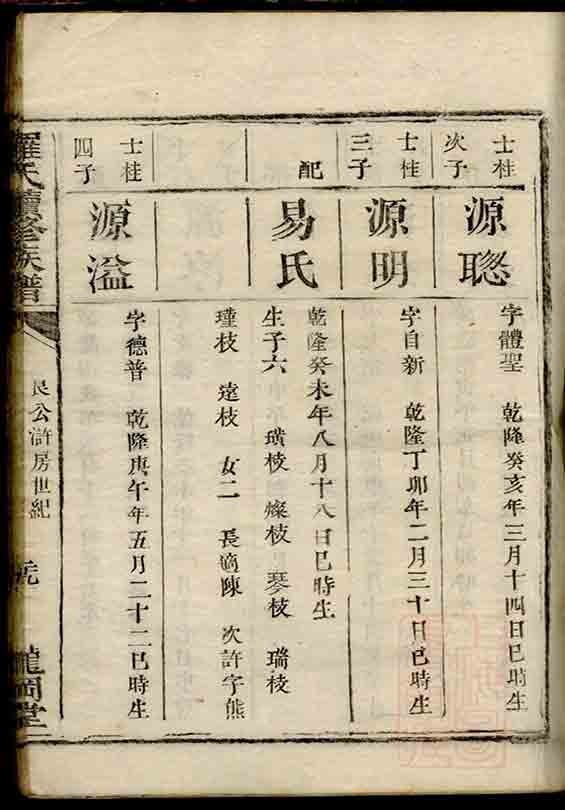 士桂
次子
源聰
字體聖 乾隆癸亥年三月十四日巳時生
士桂
三子
源明
字自新 乾隆丁卯年二月三十日巳時生
配
易氏
乾隆癸未年八月十八日巳時生
生子六 璜枝 燦枝 琴枝 瑞枝
瑾枝 遠枝 女二 長適陳 次許字熊
士桂
四子
源溢
字德普 乾隆庚午年五月二十二巳時生
羅氏續修族譜
良公滸房世紀
龍岡堂